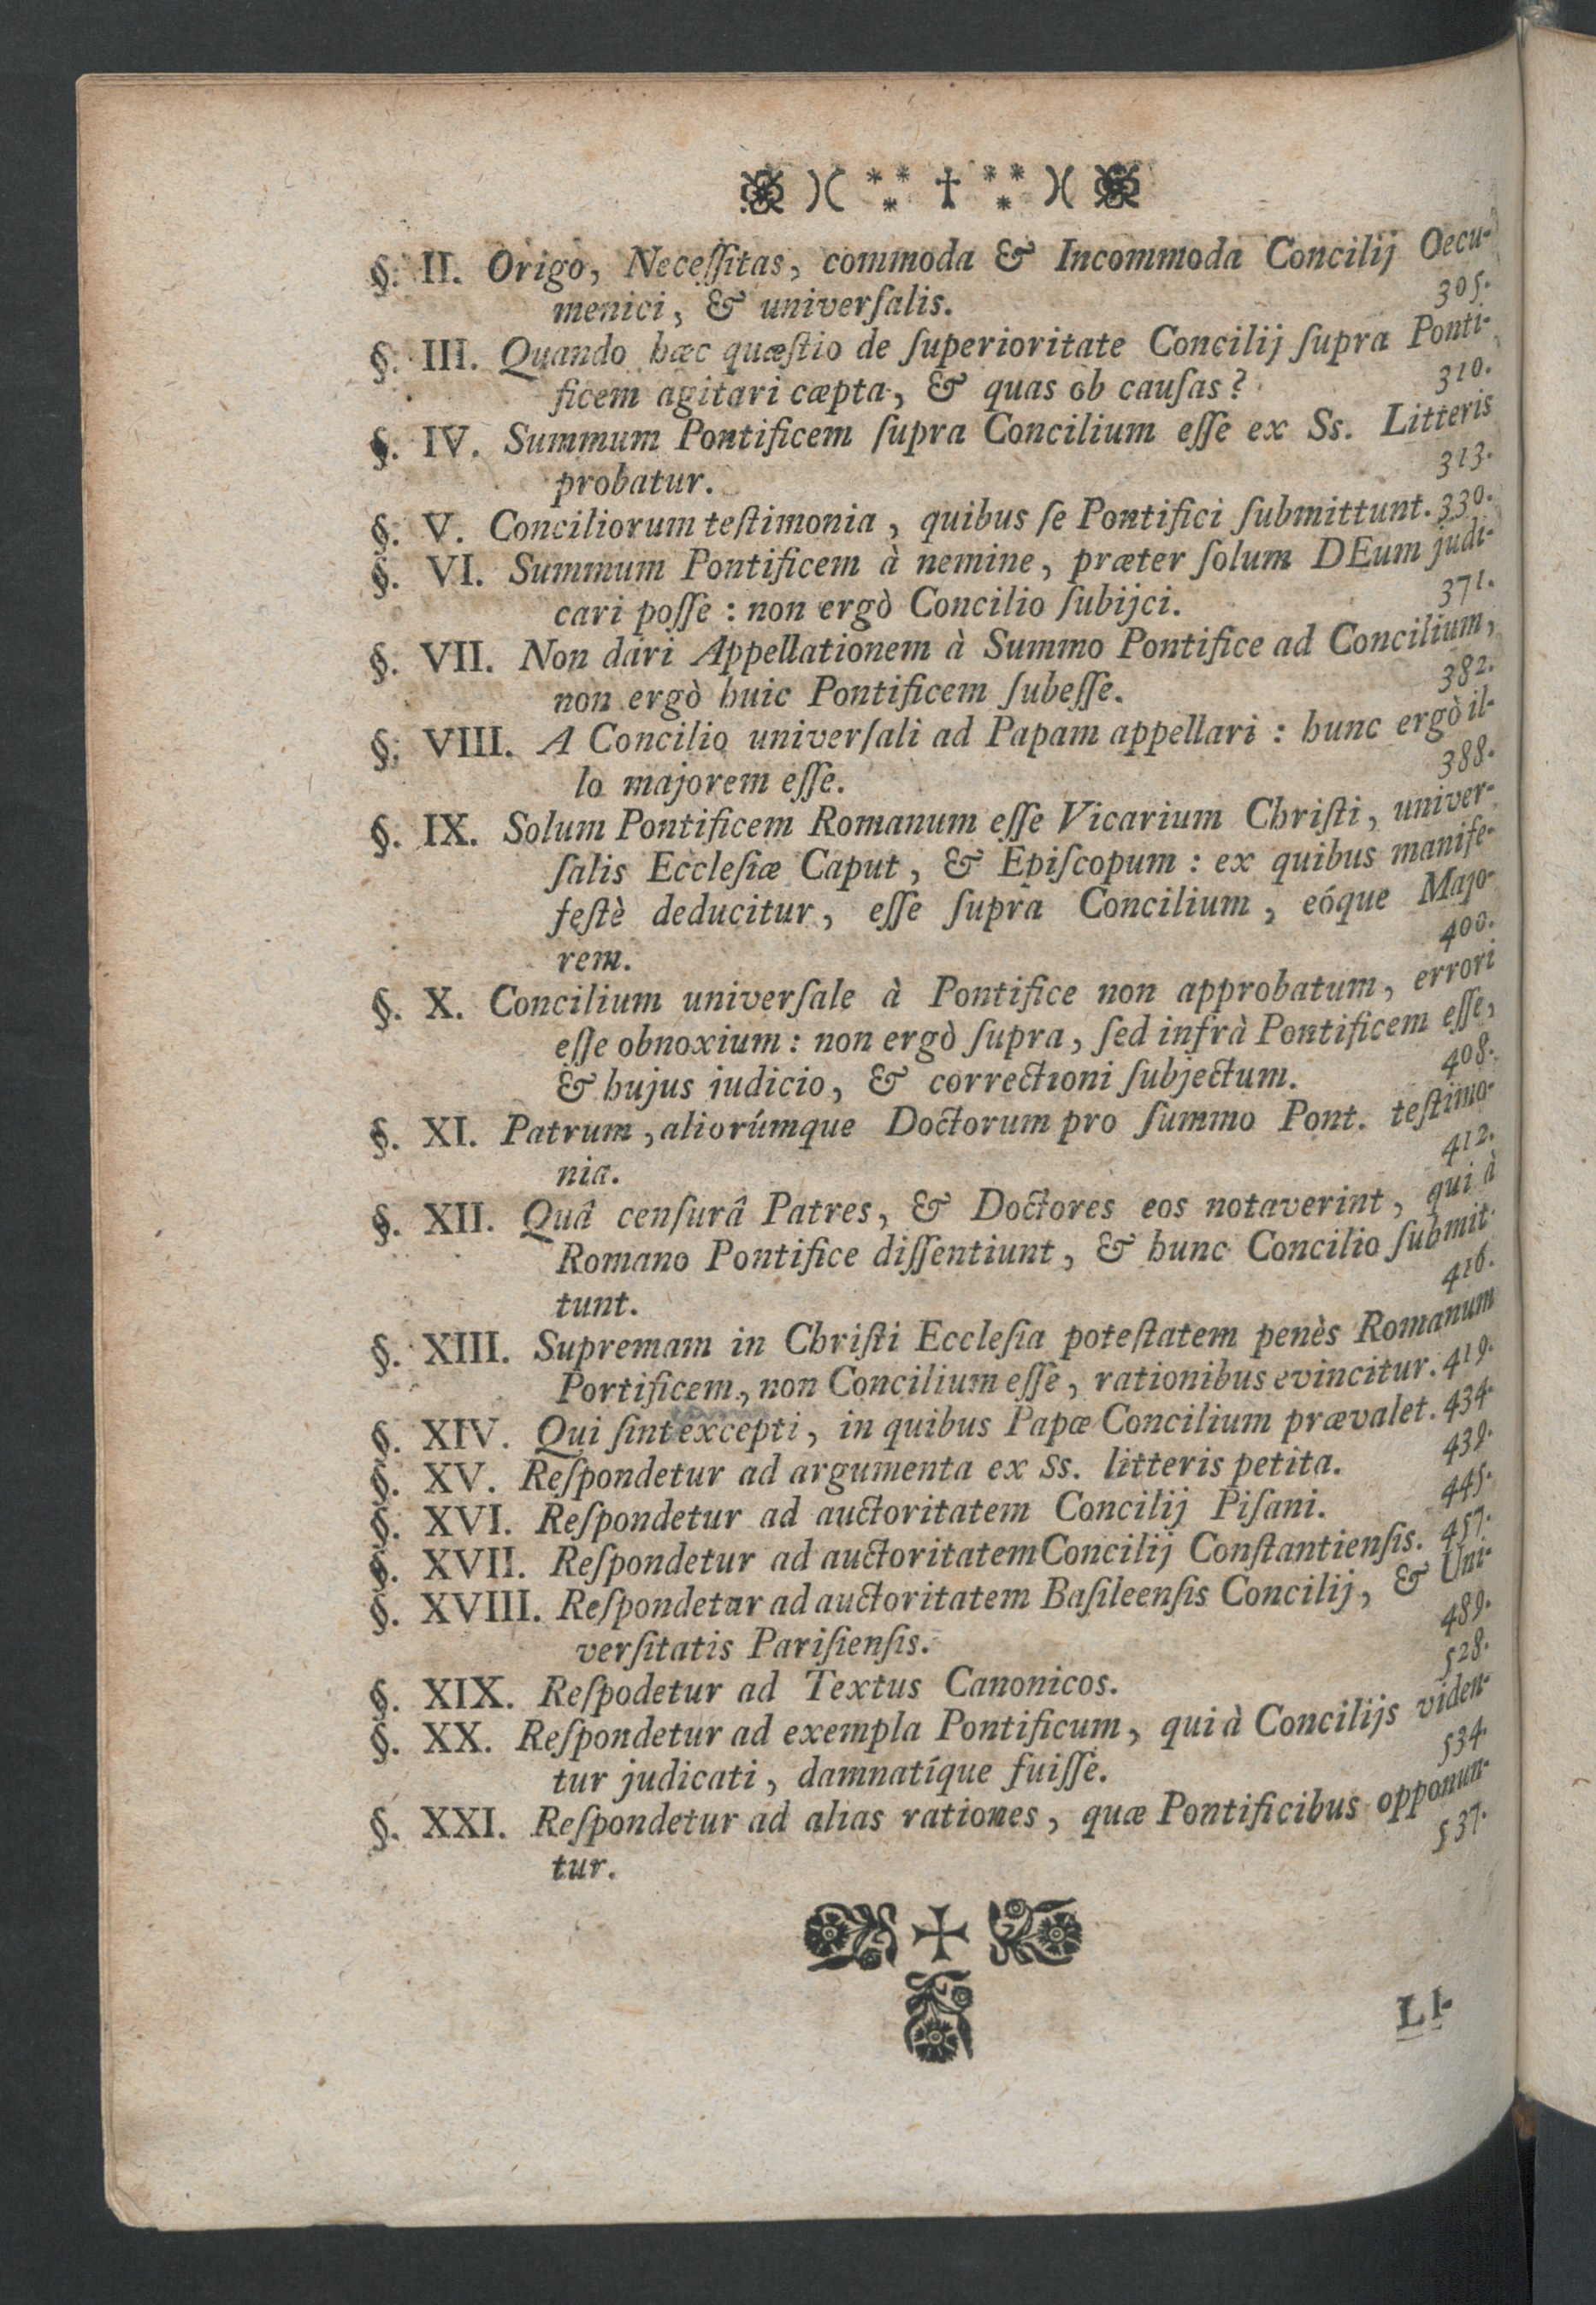 §. II. Origo, Neceſſitas, commoda & Incommoda Concilij Oecu-
menici, & univerſalis. 305.
§. III. Quando hæc quæſtio de ſuperioritate Concilij ſupra Ponti-
ficem agitari cæpta, & quas ob cauſas? 310.
§. IV. Summum Pontificem ſupra Concilium eſſe ex Ss. Litteris
probatur. 313.
§. V. Conciliorum teſtimonia, quibus ſe Pontifici ſubmittunt. 330.
§. VI. Summum Pontificem à nemine, præter ſolum DEum judi-
cari poſſe : non ergò Concilio ſubijci. 371.
§. VII. Non dari Appellationem à Summo Pontifice ad Concilium,
non ergò huic Pontificem ſubeſſe. 382.
§. VIII. A Concilio univerſali ad Papam appellari : hunc ergò il-
lo majorem eſſe. 388.
§. IX. Solum Pontificem Romanum eſſe Vicarium Chriſti, univer-
ſalis Eccleſiæ Caput, & Epiſcopum : ex quibus manife-
feſtè deducitur, eſſe ſupra Concilium, eóque Majo-
rem. 400.
§. X. Concilium univerſale à Pontifice non approbatum, errori
eſſe obnoxium : non ergò ſupra, ſed infrà Pontificem eſſe,
& hujus iudicio, & correctioni ſubjectum. 408.
§. XI. Patrum, aliorúmque Doctorum pro ſummo Pont. teſtimo-
nia. 412.
§. XII. Quâ cenſurâ Patres, & Doctores eos notaverint, qui à
Romano Pontifice diſſentiunt, & hunc Concilio ſubmit-
tunt. 416.
§. XIII. Supremam in Chriſti Eccleſia poteſtatem penès Romanum
Portificem, non Concilium eſſe, rationibus evincitur. 419.
§. XIV. Qui ſint excepti, in quibus Papæ Concilium prævalet. 434.
§. XV. Reſpondetur ad argumenta ex Ss. litteris petita. 439.
§. XVI. Reſpondetur ad auctoritatem Concilij Piſani. 445.
§. XVII. Reſpondetur ad auctoritatem Concilij Conſtantienſis. 457.
§. XVIII. Reſpondetur ad auctoritatem Baſileenſis Concilij, & Uni-
verſitatis Pariſienſis. 489.
§. XIX. Reſpodetur ad Textus Canonicos. 528.
§. XX. Reſpondetur ad exempla Pontificum, qui à Concilijs viden-
tur judicati, damnatíque fuiſſe. 534.
§. XXI. Reſpondetur ad alias rationes, quæ Pontificibus opponun-
tur. 537.
LI-